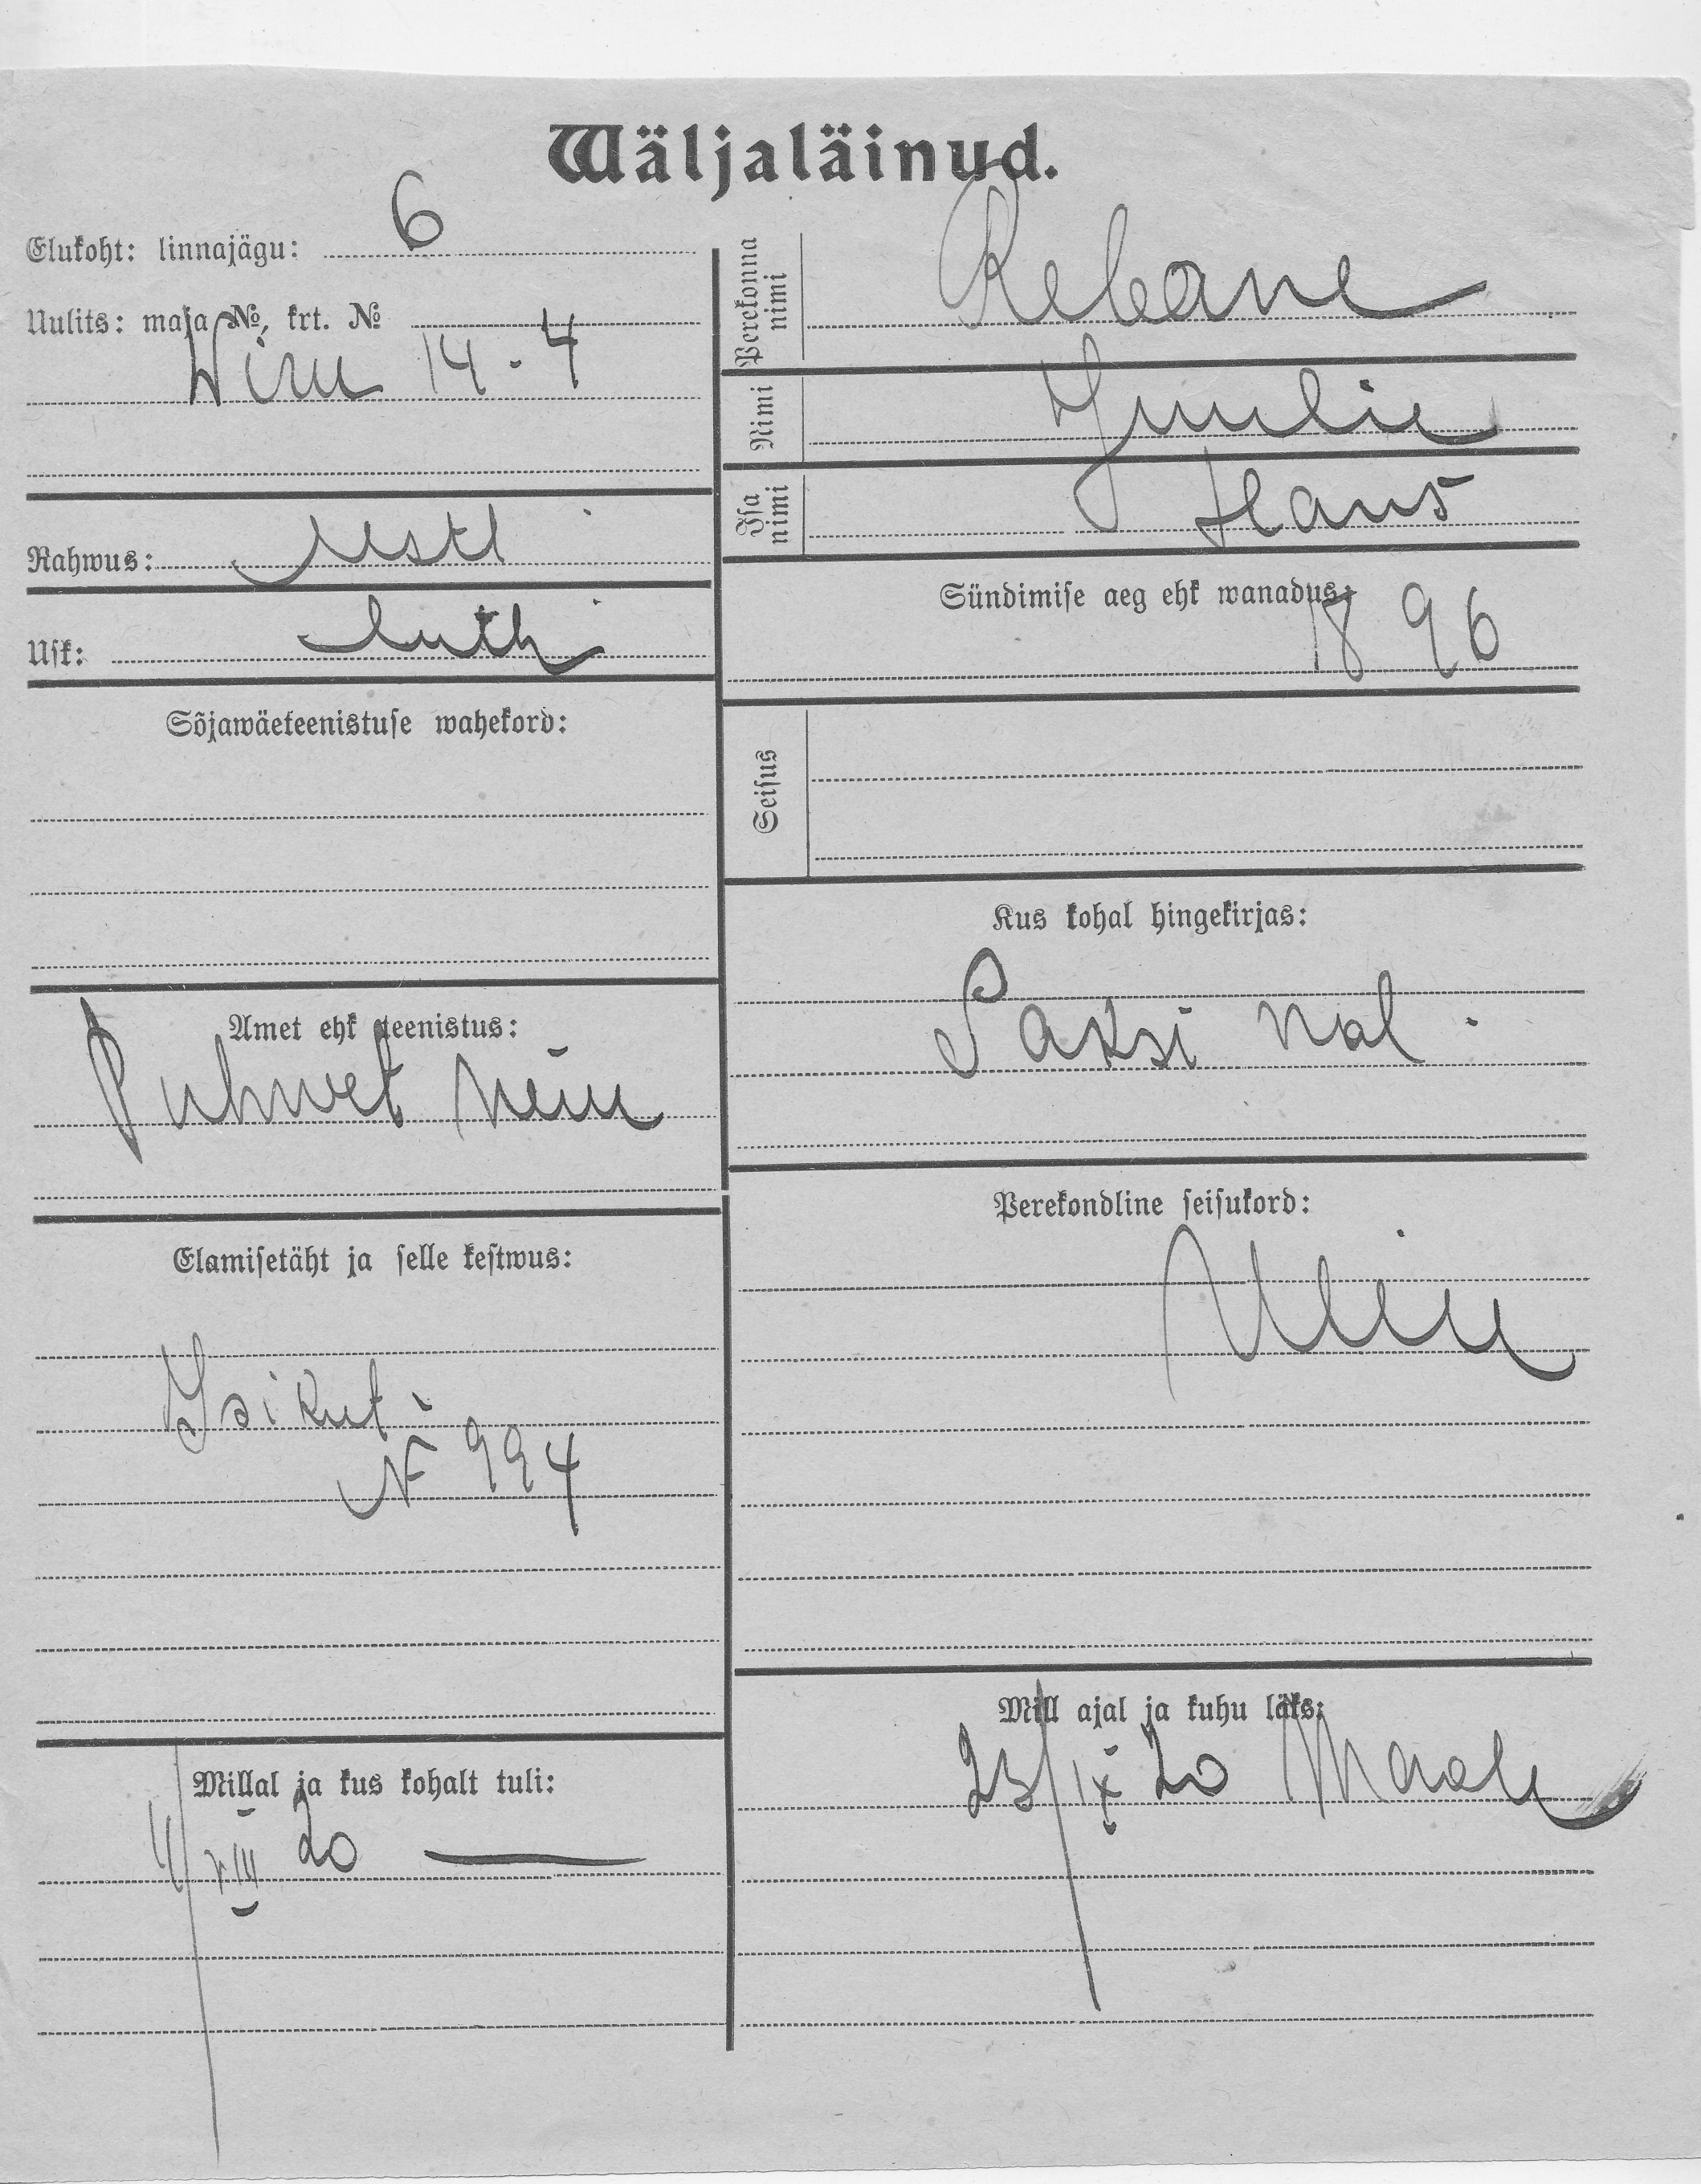 Wäljaläinud.
Elukoht: linnajägu: 6
Uulits: maja №, krt. №
Wiru 14 - 4
Rahwus: Eestl.
Usk: Luth.
Sõjawäeteenistuse wahekord:
Amet ehk teenistus:
Puhwet neiu
Elamisetäht ja selle kestwus:
Isikut.
N 994
Millal ja kus kohalt tuli:
4/VIII 20 —
Perekonna nimi
Rebane
Nimi
Juulie
Isa nimi
Hans
Sündimise aeg ehk wanadus:
1896
Seisus
Kus kohal hingekirjas:
Saksi wal.
Perekondline seisukord:
Neiu
Mill ajal ja kuhu läks:
23/IX 20 Maale